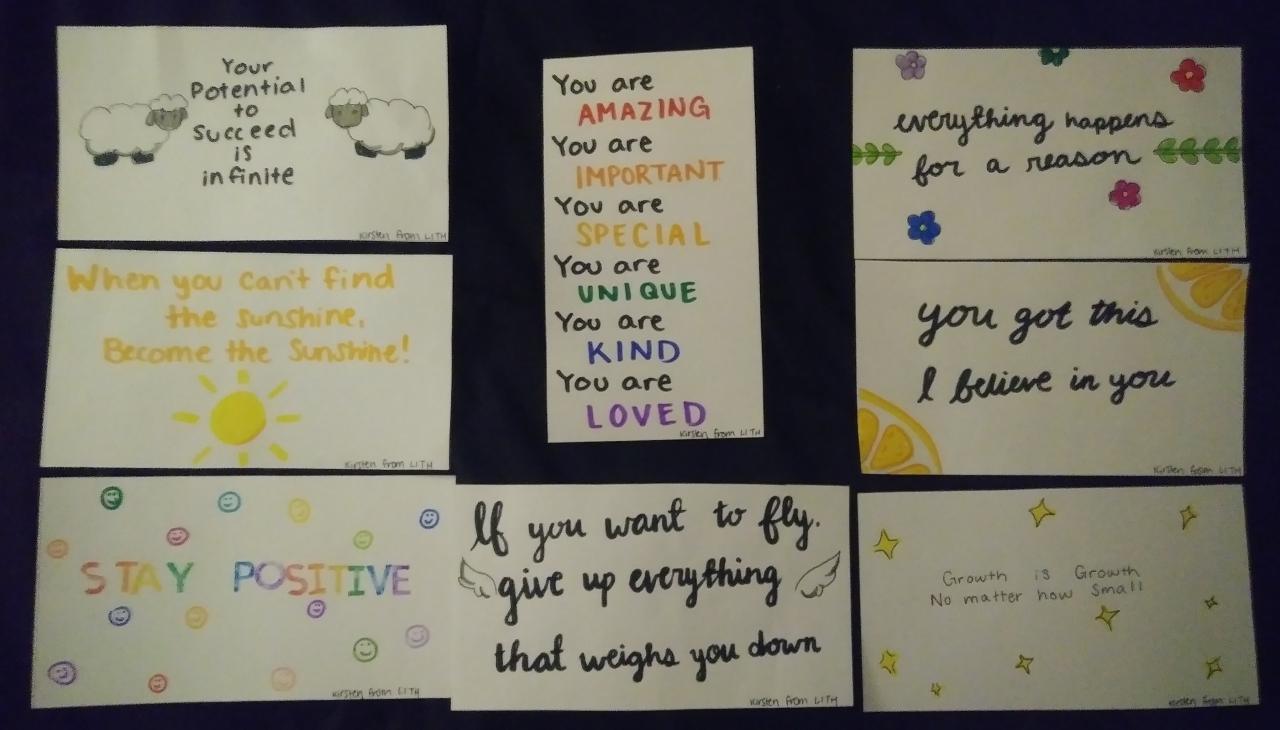 Your
Potential
to
Succeed
is
infinite
Kirsten from LITH
When you can't find
the sunshine,
Become the Sunshine!
Kirsten from LITH
STAY POSITIVE
Kirsten from LITH
You are
AMAZING
You are
IMPORTANT
You are
SPECIAL
You are
UNIQUE
You are
KIND
You are
LOVED
Kirsten from LITH
If you want to fly.
give up everything
that weighs you down
Kirsten from LITH
everything happens
for a reason
Kirsten from LITH
you got this
I believe in you
Kirsten from LITH
Growth is Growth
No matter how Small
Kirsten from LITH